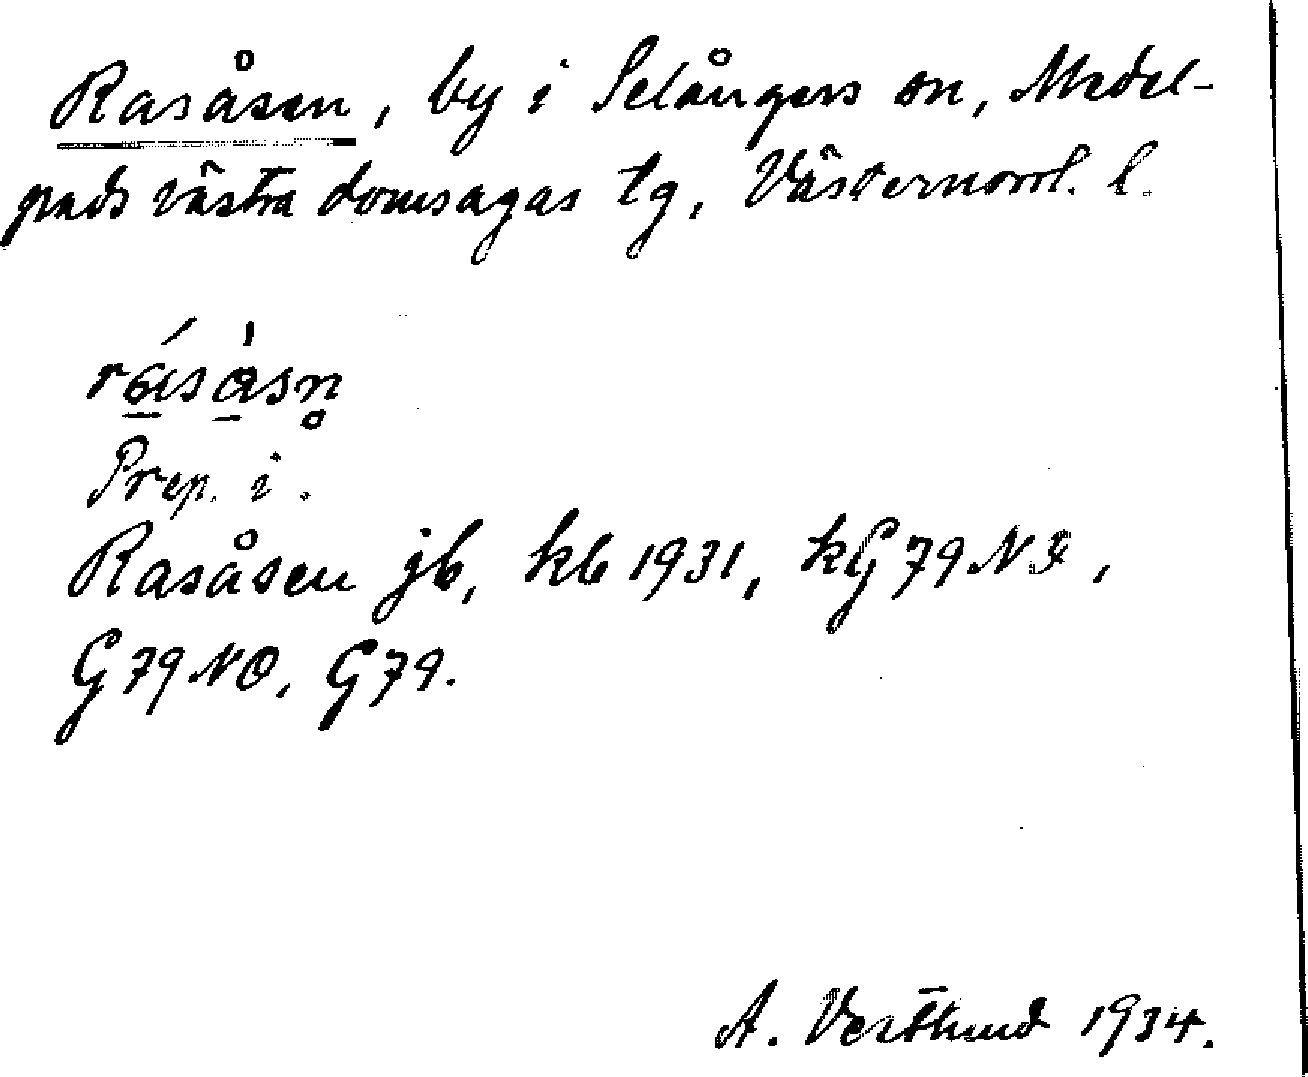 Rasåsen, by i Selångers sn, Medel-
pads västra domsagas tg, Västernorrl. l.
rásàsn̥
Prep. i.
Rasåsen jb, kb 1931, kG79NÖ,
G79NO, G79.
A. Vestlund 1934.